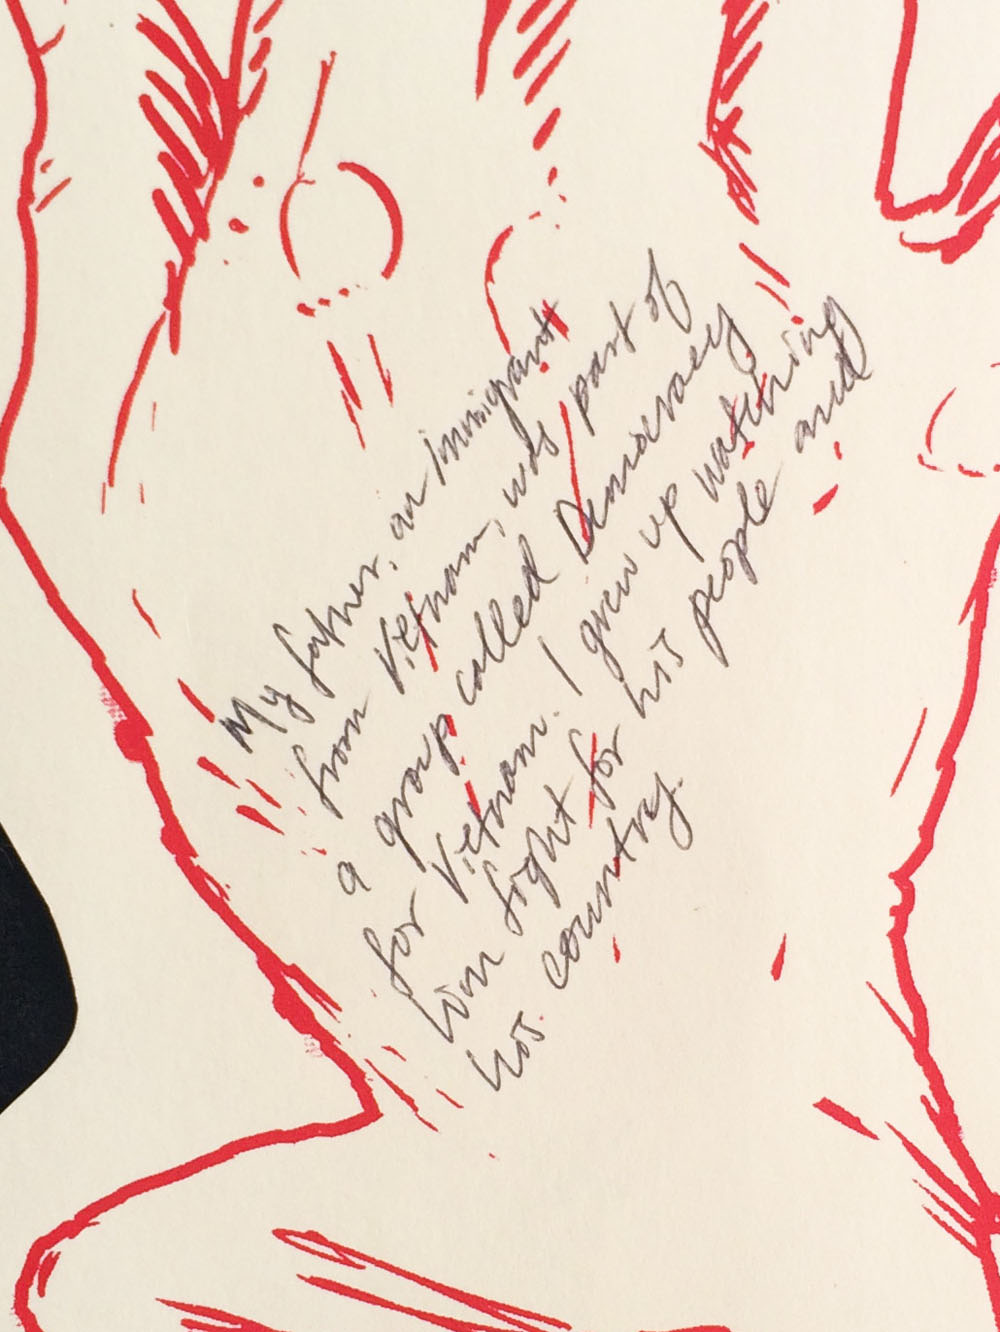 My father, an immigrant
from Vietnam, was part of
a group called Democracy
for Vietnam. I grew up watching
him fight for his people and
his country.